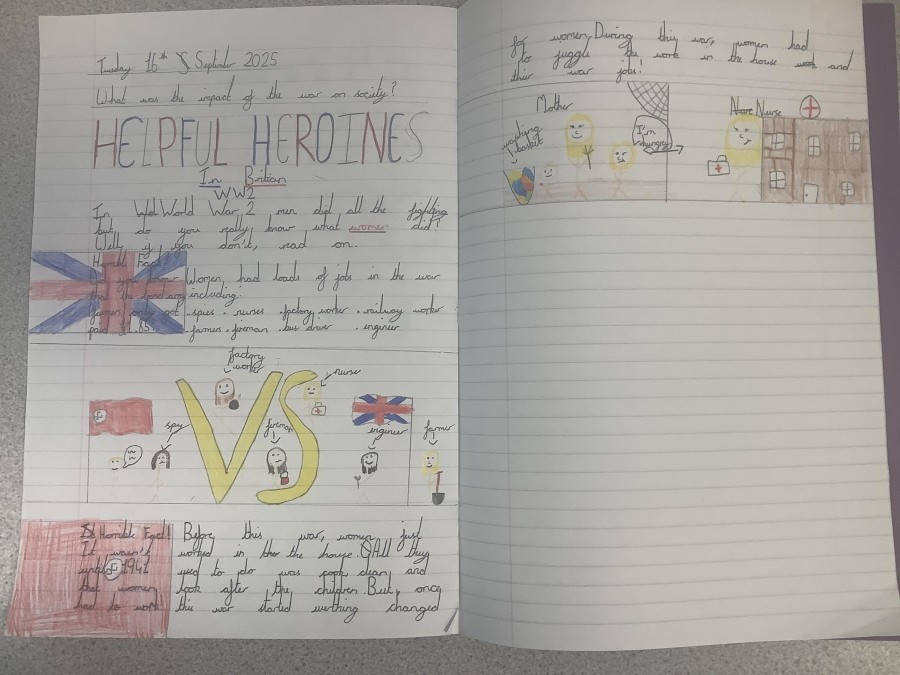 Tuesday 16th September 2025
What was the impact of the war on society?
HELPFUL HEROINES
In Britian
WW2
In World War 2 men did all the fighting
but do you really know what women did?
Well if you don't, read on.
Horrible Fact!
Women had loads of jobs in the war
that the including:
farmers only got .spies . nurses .factory worker . railway worker
paid .farmer .fireman .bus driver . enginer
factory
worker
nurse
VS
spy
fireman
enginer
farmer
Horrible Fact! Before this war, women just
It wasn't worked in the house. All they
until 1941 used to do was cook clean and
that women look after the children. But, once
had to work this war started everthing changed
for women. During this war, women had
to juggle the work in the house and
their war jobs!
Mother
Nurse
washing
basket
I'm
hungry